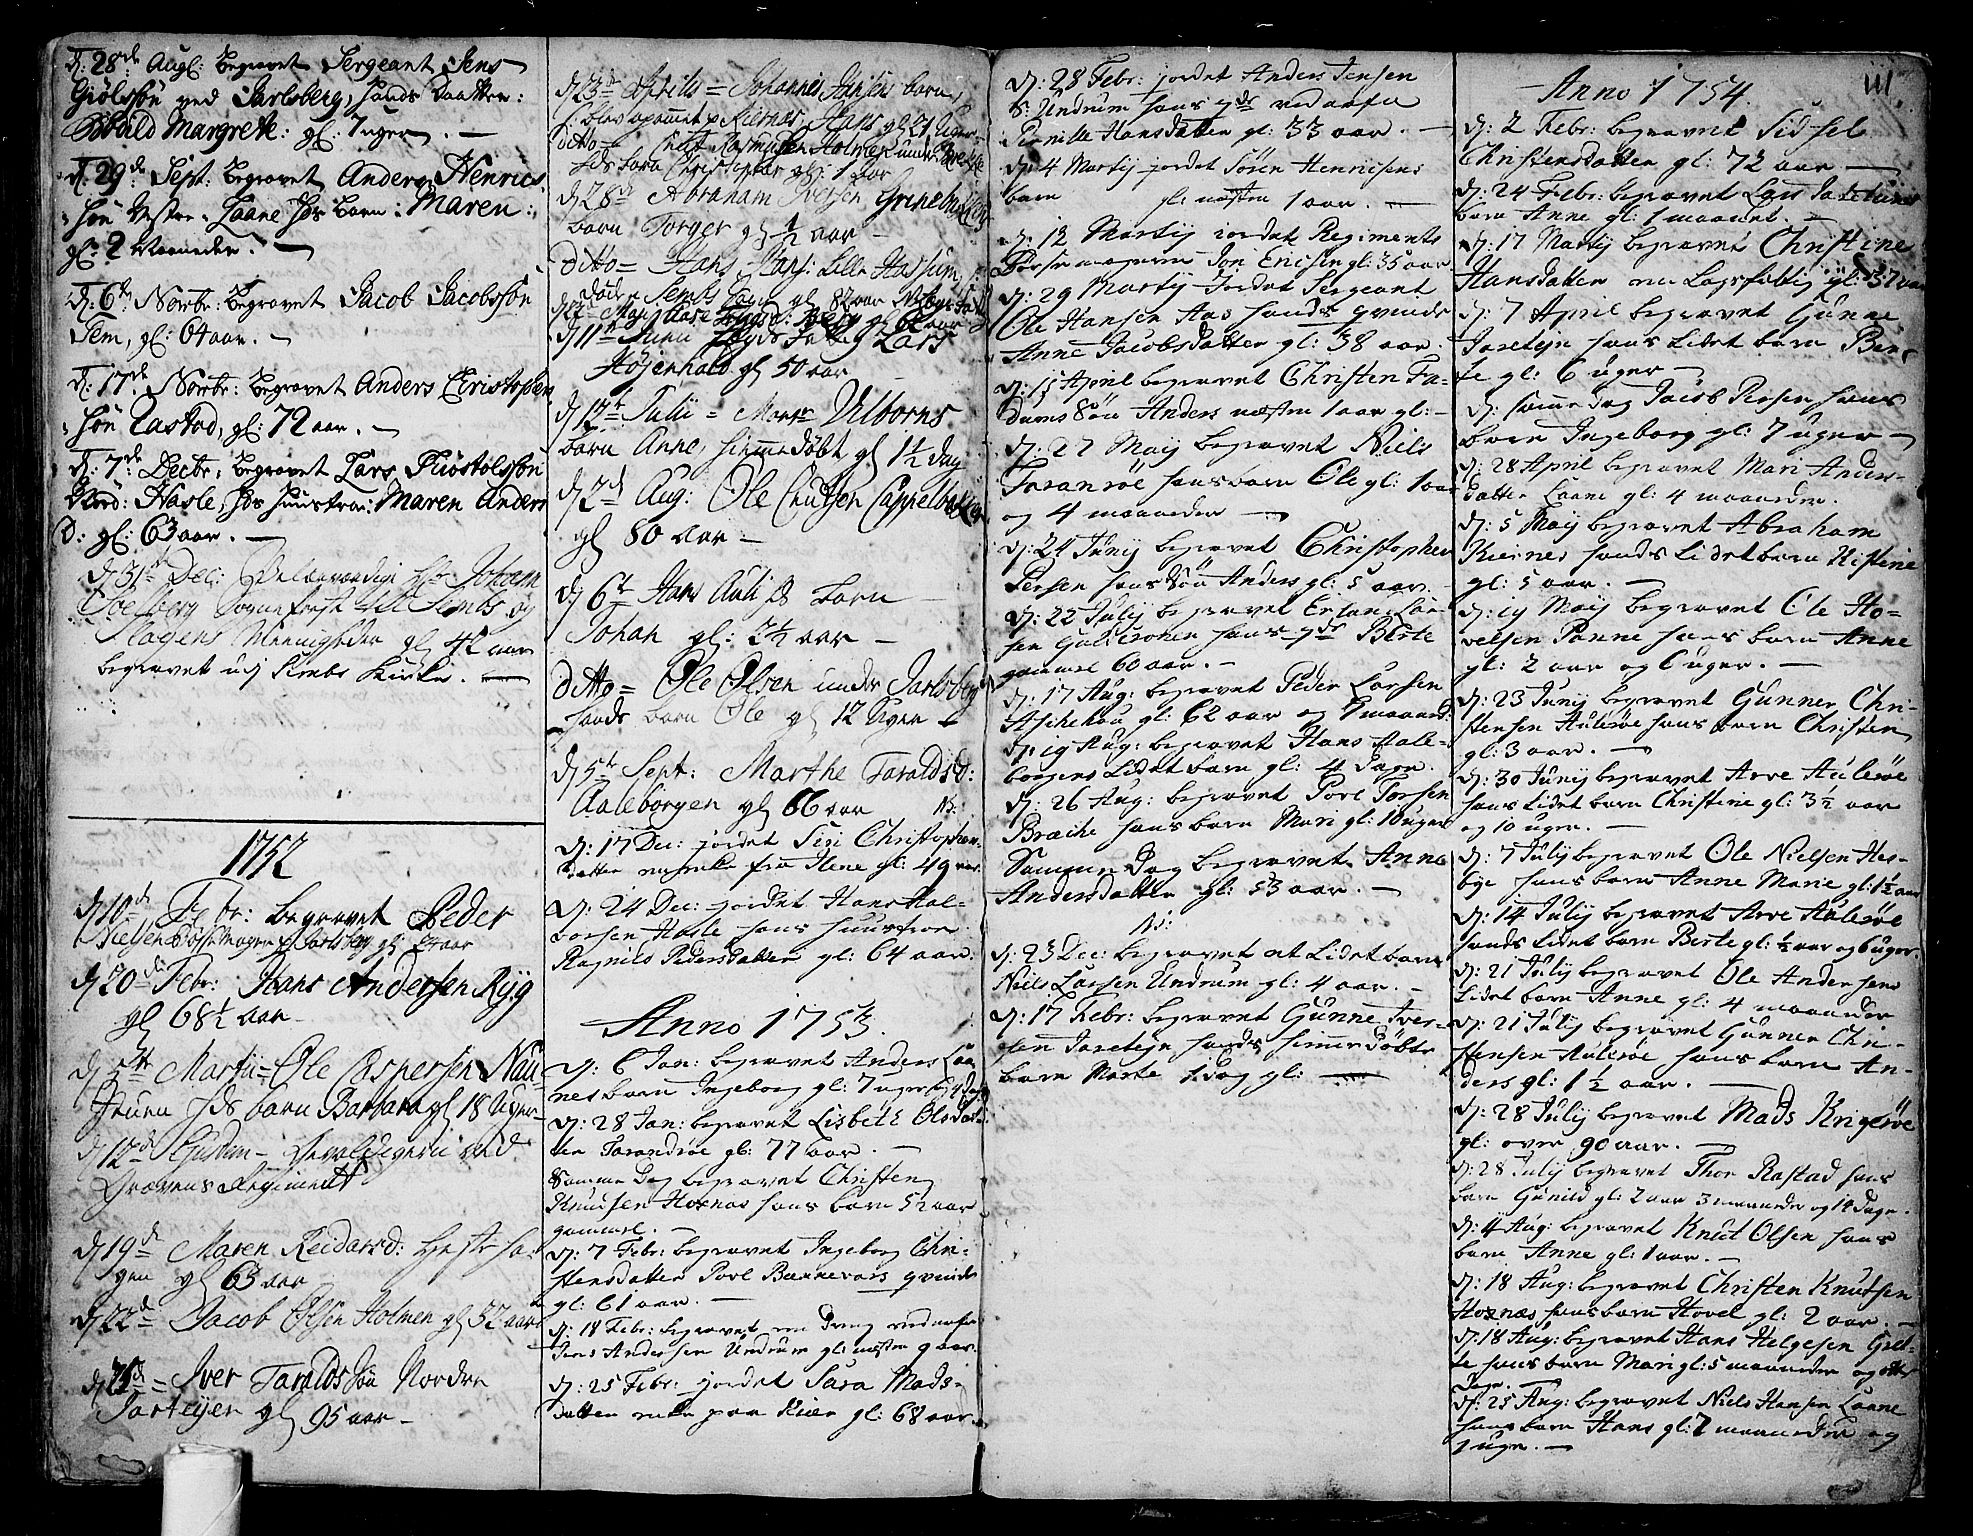 D: 28de Aug: begravet Sergeant Jens
Giølssøn ved Jarlsberg, hands Daatter:
Bodild Margrete: gl: 7 uger. —
D: 29de Sept: begravet Anders Henrics
søn Vestre Laane hds barn: Maren:
gl: 2 Maaneder. —
D: 6te Novbr: begravet Jacob Jacobssøn
Sem, gl: 64 aar. —
D: 17de Novbr: begravet Anders Christophen
søn Rastad, gl: 72 aar. —
D: 7de Decbr: begravet Lars Thiostolssøn
Nord: Hasle, hds huustroe: Maren Anders
D: gl: 63 aar. —
D 31te Dec: Velærværdige Hr Johan
Soelberg Sognepræst til Sembs og
Slagens Menigheder gl 42 aar
begravet udj Sembs Kirke. —
1752
D 10de Febr: begravet Peder
Nielsen Bøssemager Jarlsberg gl: aar
D 20de Febr: Hans Andersen Ryg
gl 68½ aar —
D 5te Martii = Ole Caspersen Nau-
hds barn Barbara gl 18 Uger
D 12de Gudden- ved
Grevens Regiment
D 19de Maren Reidarsd:
gen gl 63 aar
D 22de Jacob Olsen Holmen gl 32 aar
D = Iver Taraldssøn Nordre
Jarteyen gl 95 aar —
D 23de Aprilis = Johannis Hansens barn,
Kiernæs, Hans gl 21 Uger
ditto = Rasmusen Holmen under
hds barn Christopher gl 1 aar
D 28de Abraham Iversen
barn Torger gl ½ aar —
Ditto = Hans Lille
gl 82 aar
D 11te Junii Lars
Høyenhald gl 50 aar
D 12te Julii = Vilborns
barn Anne, hiemmedøbt gl 1½ dag
D 2de Aug: Ole Cnudsen
gl 80 aar —
D 6te Hans barn
Johan gl: 2½ aar —
ditto = Ole Olsen under Jarlsberg
hands barn Ole gl 12 Uger
D 5te Sept: Marthe Taraldsd:
Aaleborgen gl 66 aar
D: 17 Dec: jordet Siri Christophers
datter enke fra Ilene gl: 49 aar
D: 24 Dec: jordet Hans Hal-
vorsen Hasle hans huustroe
Ragnild Pedersdatter gl: 64 aar.
Anno 1753.
D: 6 Jan: begravet Anders Laa
nes barn Ingeborg gl: 7 uger
D: 28 Jan: begravet Lisbeth Olsdat-
ter Tarandrøe gl: 77 aar. —
Samme Dag begravet Christen
Knudsen Hoxnas hans barn 5½ aar
gammel. —
D: 7 Febr: begravet Ingeborg Chri-
stensdatter Povl qvinde
gl: 61 aar. —
D: 18 Febr: begravet en Dreng
Jens Andersen Undrum gl: næsten 9 aar.
D: 25 Febr: jordet Sara Mads-
datter enke paa Kiær gl: 68 aar.
D: 28 Febr: jordet Anders Jensen
S: Undrum hans
Pernille Hansdatter gl: 33 aar. —
D: 4 Martij jordet Søren Henricsens
barn gl: næsten 1 aar. —
D: 12 Martij jordet Regiments
Jon Ericsen gl: 35 aar
D: 29 Martij jordet Sergeant
Ole Hansen Aas hands qvinde
Anne Jacobsdatter gl: 38 aar.
D: 15 April begravet Christen Fa-
dums Søn Anders næsten 1 aar gl: —
D: 27 Maij begravet Niels
Taranrøe hans barn Ole gl: 1 aar
og 4 maaneder —
D: 24 Junij begravet Christopher
Persen hans Søn Anders gl: 5 aar. —
D: 22 Julij begravet Erland Lar-
sen Guldkronen hans Berte
gammel 60 aar. —
D: 17 Aug: begravet Peder Larsen
Askehou gl: 62 aar og maaned:
D: 19 Aug: begravet Hans Aale-
borgens lidet barn gl: 4 Dage.
D: 26 Aug: begravet Povl Torsen
Bræche hans barn Mari gl: 10 uger
Samme Dag begravet Anne
Andersdatter gl: 53 aar. —
D: 23 Dec: begravet et lidet barn
Niels Larsen Undrum gl: 4 aar. —
D: 17 Febr: begravet Gunne Iver-
sen Jareteyn hands hiemmedøbte
barn Marte 1 dag gl: —
111
Anno 1754.
D: 2 Febr: begravet Sidsel
Christensdatter gl: 72 aar —
D: 24 Febr: begravet Lars Jareteins
barn Anne gl: 1 maanet. —
D: 17 Martij begravet Christine
Hansdatter en Lægsfattig gl: 37 aar
D: 7 April begravet Gunne
Jareteyn hans lidet barn Ber-
te gl: 6 uger —
D: samme dag Jacob Persen hans
barn Ingeborg gl: 7 uger —
D: 28 April begravet Mari Anders-
datter Laane gl: 4 maaneder.
D: 5 Maij begravet Abraham
Kiernes hands lidet barn Kistine
gl: 5 aar. —
D: 19 Maij begravet Ole Ho-
velsen Panne hans barn Anne
gl: 2 aar og 6 uger. —
D: 23 Junij begravet Gunner Chri-
stensen Aulerøe hans barn Christen
gl: 3 aar. —
D: 30 Junij begravet Arve Aulerøe
hans lidet barn Christine gl: 3½ aar
og 10 uger. —
D: 7 Julij begravet Ole Nielsen Hes-
bye hans barn Anne Marie gl: 1½ aar
D: 14 Julij begravet Arve Aulerøe
hands lidet barn Berte gl: ½ aar og 6 uger.
D: 21 Julij begravet Ole Andersens
lidet barn Anne gl: 4 maaneder
D: 21 Julij begravet Gunner Chri-
stensen Aulerøe hans barn An-
ders gl: 1½ aar. —
D: 28 Julij begravet Mads Krigerøe
gl: over 90 aar. —
D: 28 Julij begravet Thor Rastad hans
barn Gunild gl: 2 aar 3 maaneder og 14 Dage.
D: 4 Aug: begravet Knut Olsen hans
barn Anne gl: 1 aar. —
D: 18 Aug: begravet Christen Knutsen
Hoxnæs hans barn Hovel gl: 2 aar. —
D: 18 Aug: begravet Hans Helgesen
hans barn Mari gl: 5 maaneder og otte
Dage. —
D: 25 Aug: begravet Niels Hansen Laane
hans barn Hans gl: 7 maaneder og
1 uge. —